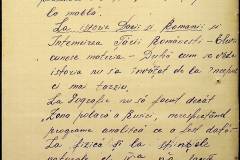 la
La istorie Dacii și Romanii și
Întemeirea Țării Românești – Cu-
nosc materia – După cum se vede
istoria nu s'a învățat de la început
ci mai târziu.
La Geografie nu s'a făcut decât
Zona polară a Rusiei, nerespectând
programa analitică ce a fost dată.
La fizică și la științele
naturale